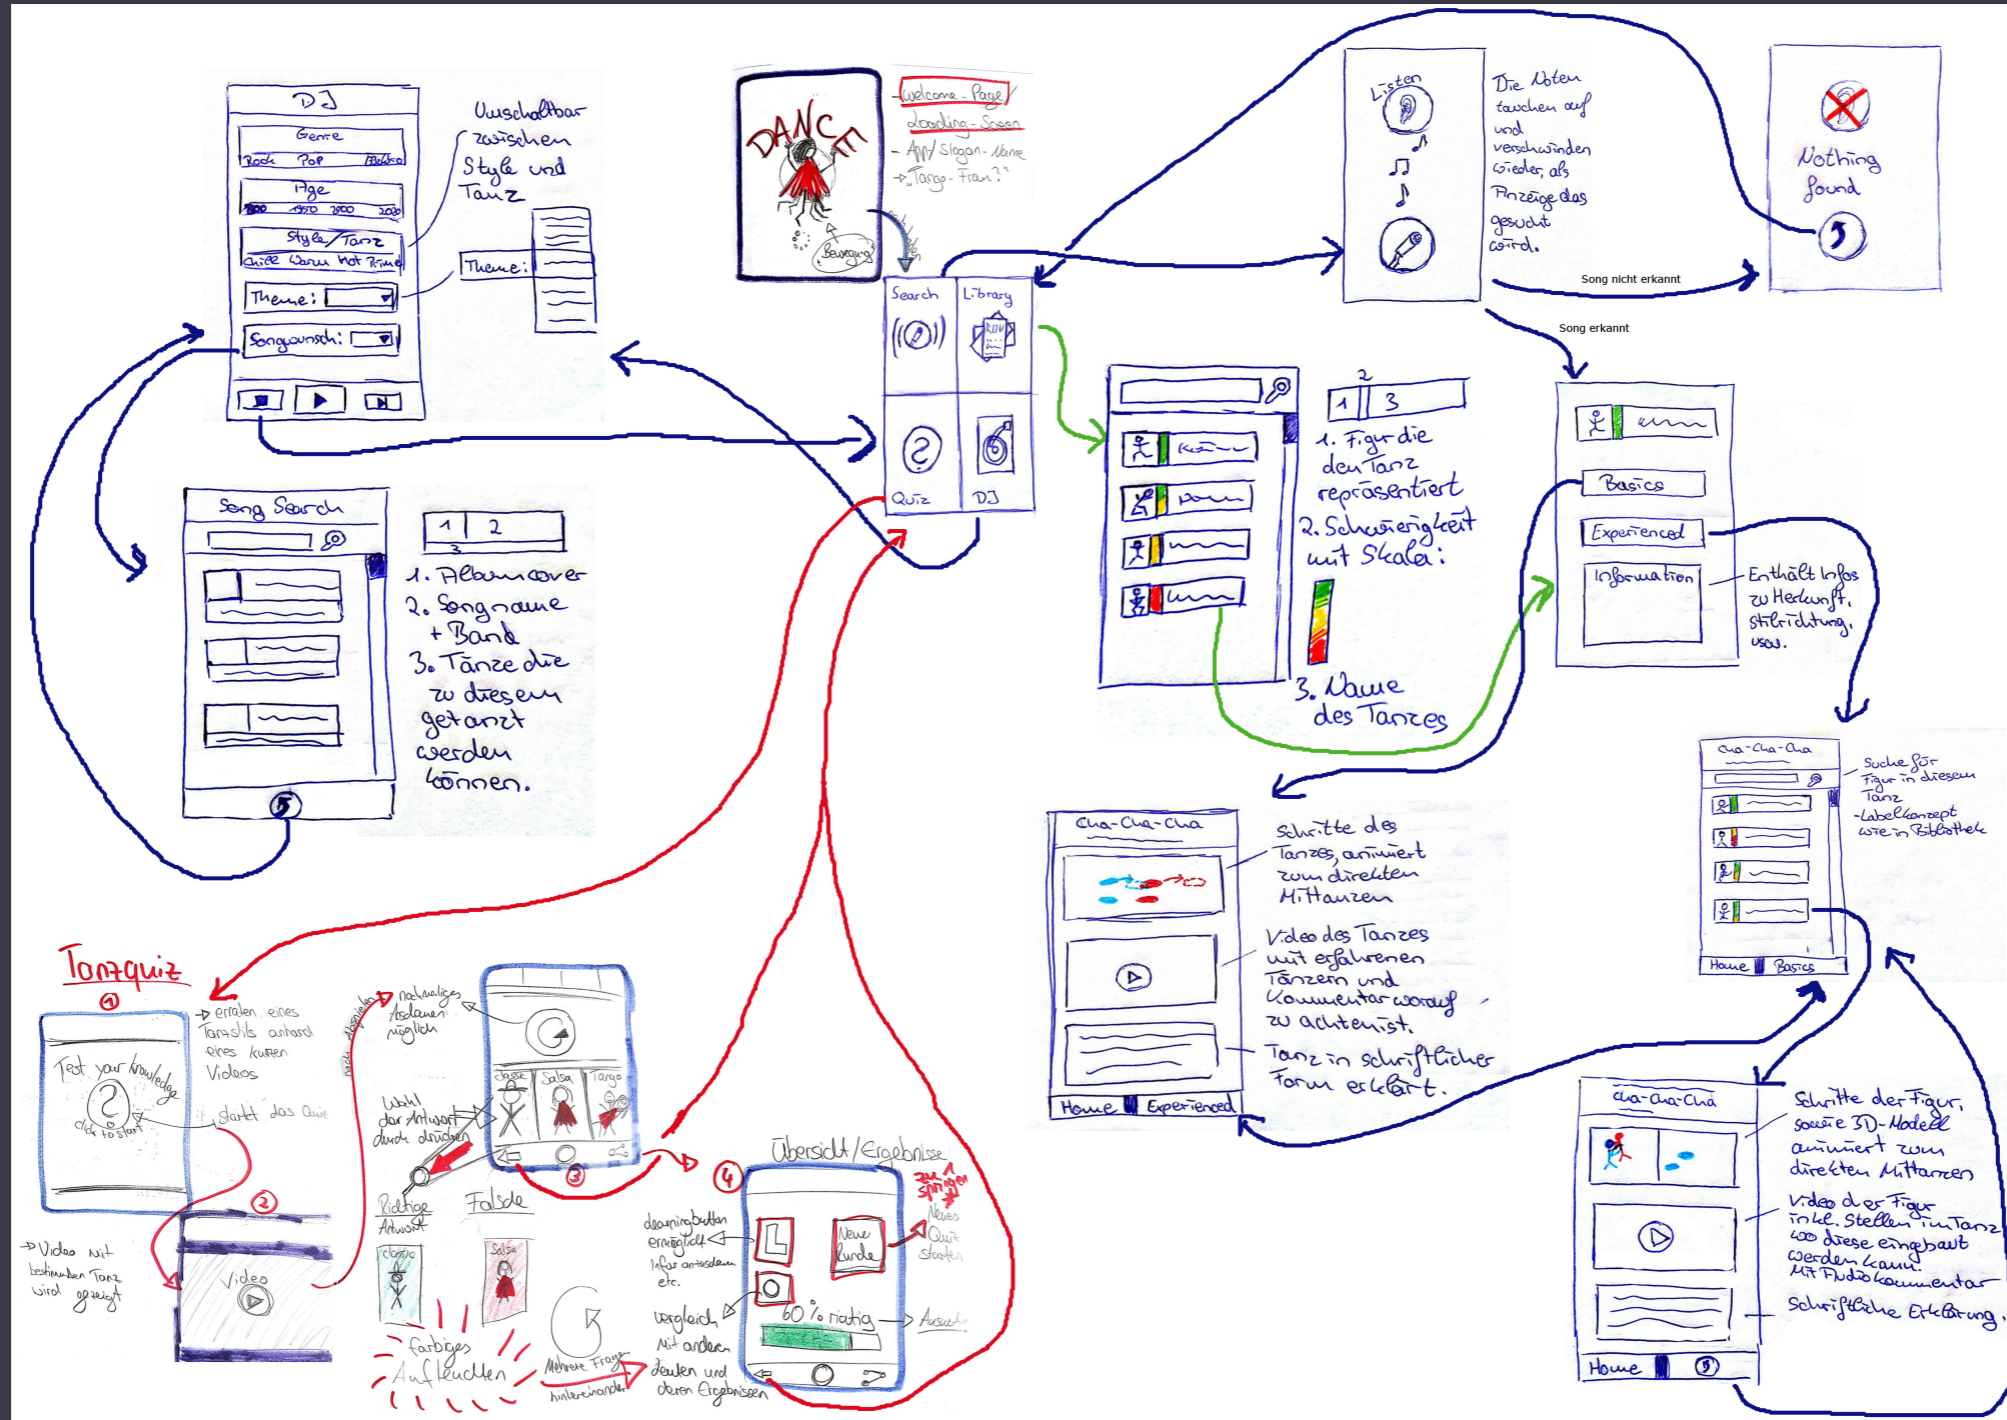 DJ
Genre
Rock Pop
Age
1950 2000 2020
Style/Tanz
Chill Warm Hot Prime
Theme:
Songwunsch:
Umschaltbar
zwischen
Style und
Tanz
Theme:
Song Search
1 2
3
1. Albumcover
2. Songname
+ Band
3. Tänze die
zu diesem
getanzt
werden
können.
DANCE
Bewegung
- Welcome-Page/
Loading-Screen
- App/Slogan-Name
-> "Tango-Frau?"
Search Library
Quiz DJ
Listen
Die Noten
tauchen auf
und
verschwinden
wieder, als
Anzeige das
gesucht
wird.
Nothing
found
Song nicht erkannt
Song erkannt
1 2 3
1. Figur die
den Tanz
repräsentiert
2. Schwierigkeit
mit Skala:
3. Name
des Tanzes
Basics
Experienced
Information
Enthält Infos
zu Herkunft,
Stilrichtung,
usw.
Cha-Cha-Cha
Home Basics
Suche für
Figur in diesem
Tanz
-Labelkonzept
wie in Bibliothek
Cha-Cha-Cha
Home Experienced
Schritte des
Tanzes, animiert
zum direkten
Mittanzen
Video des Tanzes
mit erfahrenen
Tänzern und
Kommentar worauf
zu achten ist.
Tanz in schriftlicher
Form erklärt.
Cha-Cha-Cha
Home
Schritte der Figur,
sowie 3D-Modell
animiert zum
direkten Mittanzen
Video der Figur
inkl. Stellen im Tanz
wo diese eingbaut
werden kann.
Mit Audiokommentar
Schriftliche Erklärung.
Tanzquiz
1
Test your knowledge
?
click to start
-> erraten eines
Tanzstils anhand
eines kurzen
Videos
startet das Quiz
2
Video
-> Video mit
bestimmten Tanz
wird gezeigt
nach Abspielen
nochmaliges
Abspielen
möglich
classic Salsa Tango
3
Wahl
der Antwort
durch drücken
Richtige
Antwort
Falsche
classic
Salsa
farbiges
Aufleuchten
Mehrere Fragen
hintereinander
4
Übersicht/Ergebnisse
L
Neue
Runde
60% richtig
Learningbutton
ermöglicht
Infos
etc.
vergleich
Mit anderen
Leuten und
deren Ergebnissen
zu 1
springen
Neues
Quiz
starten